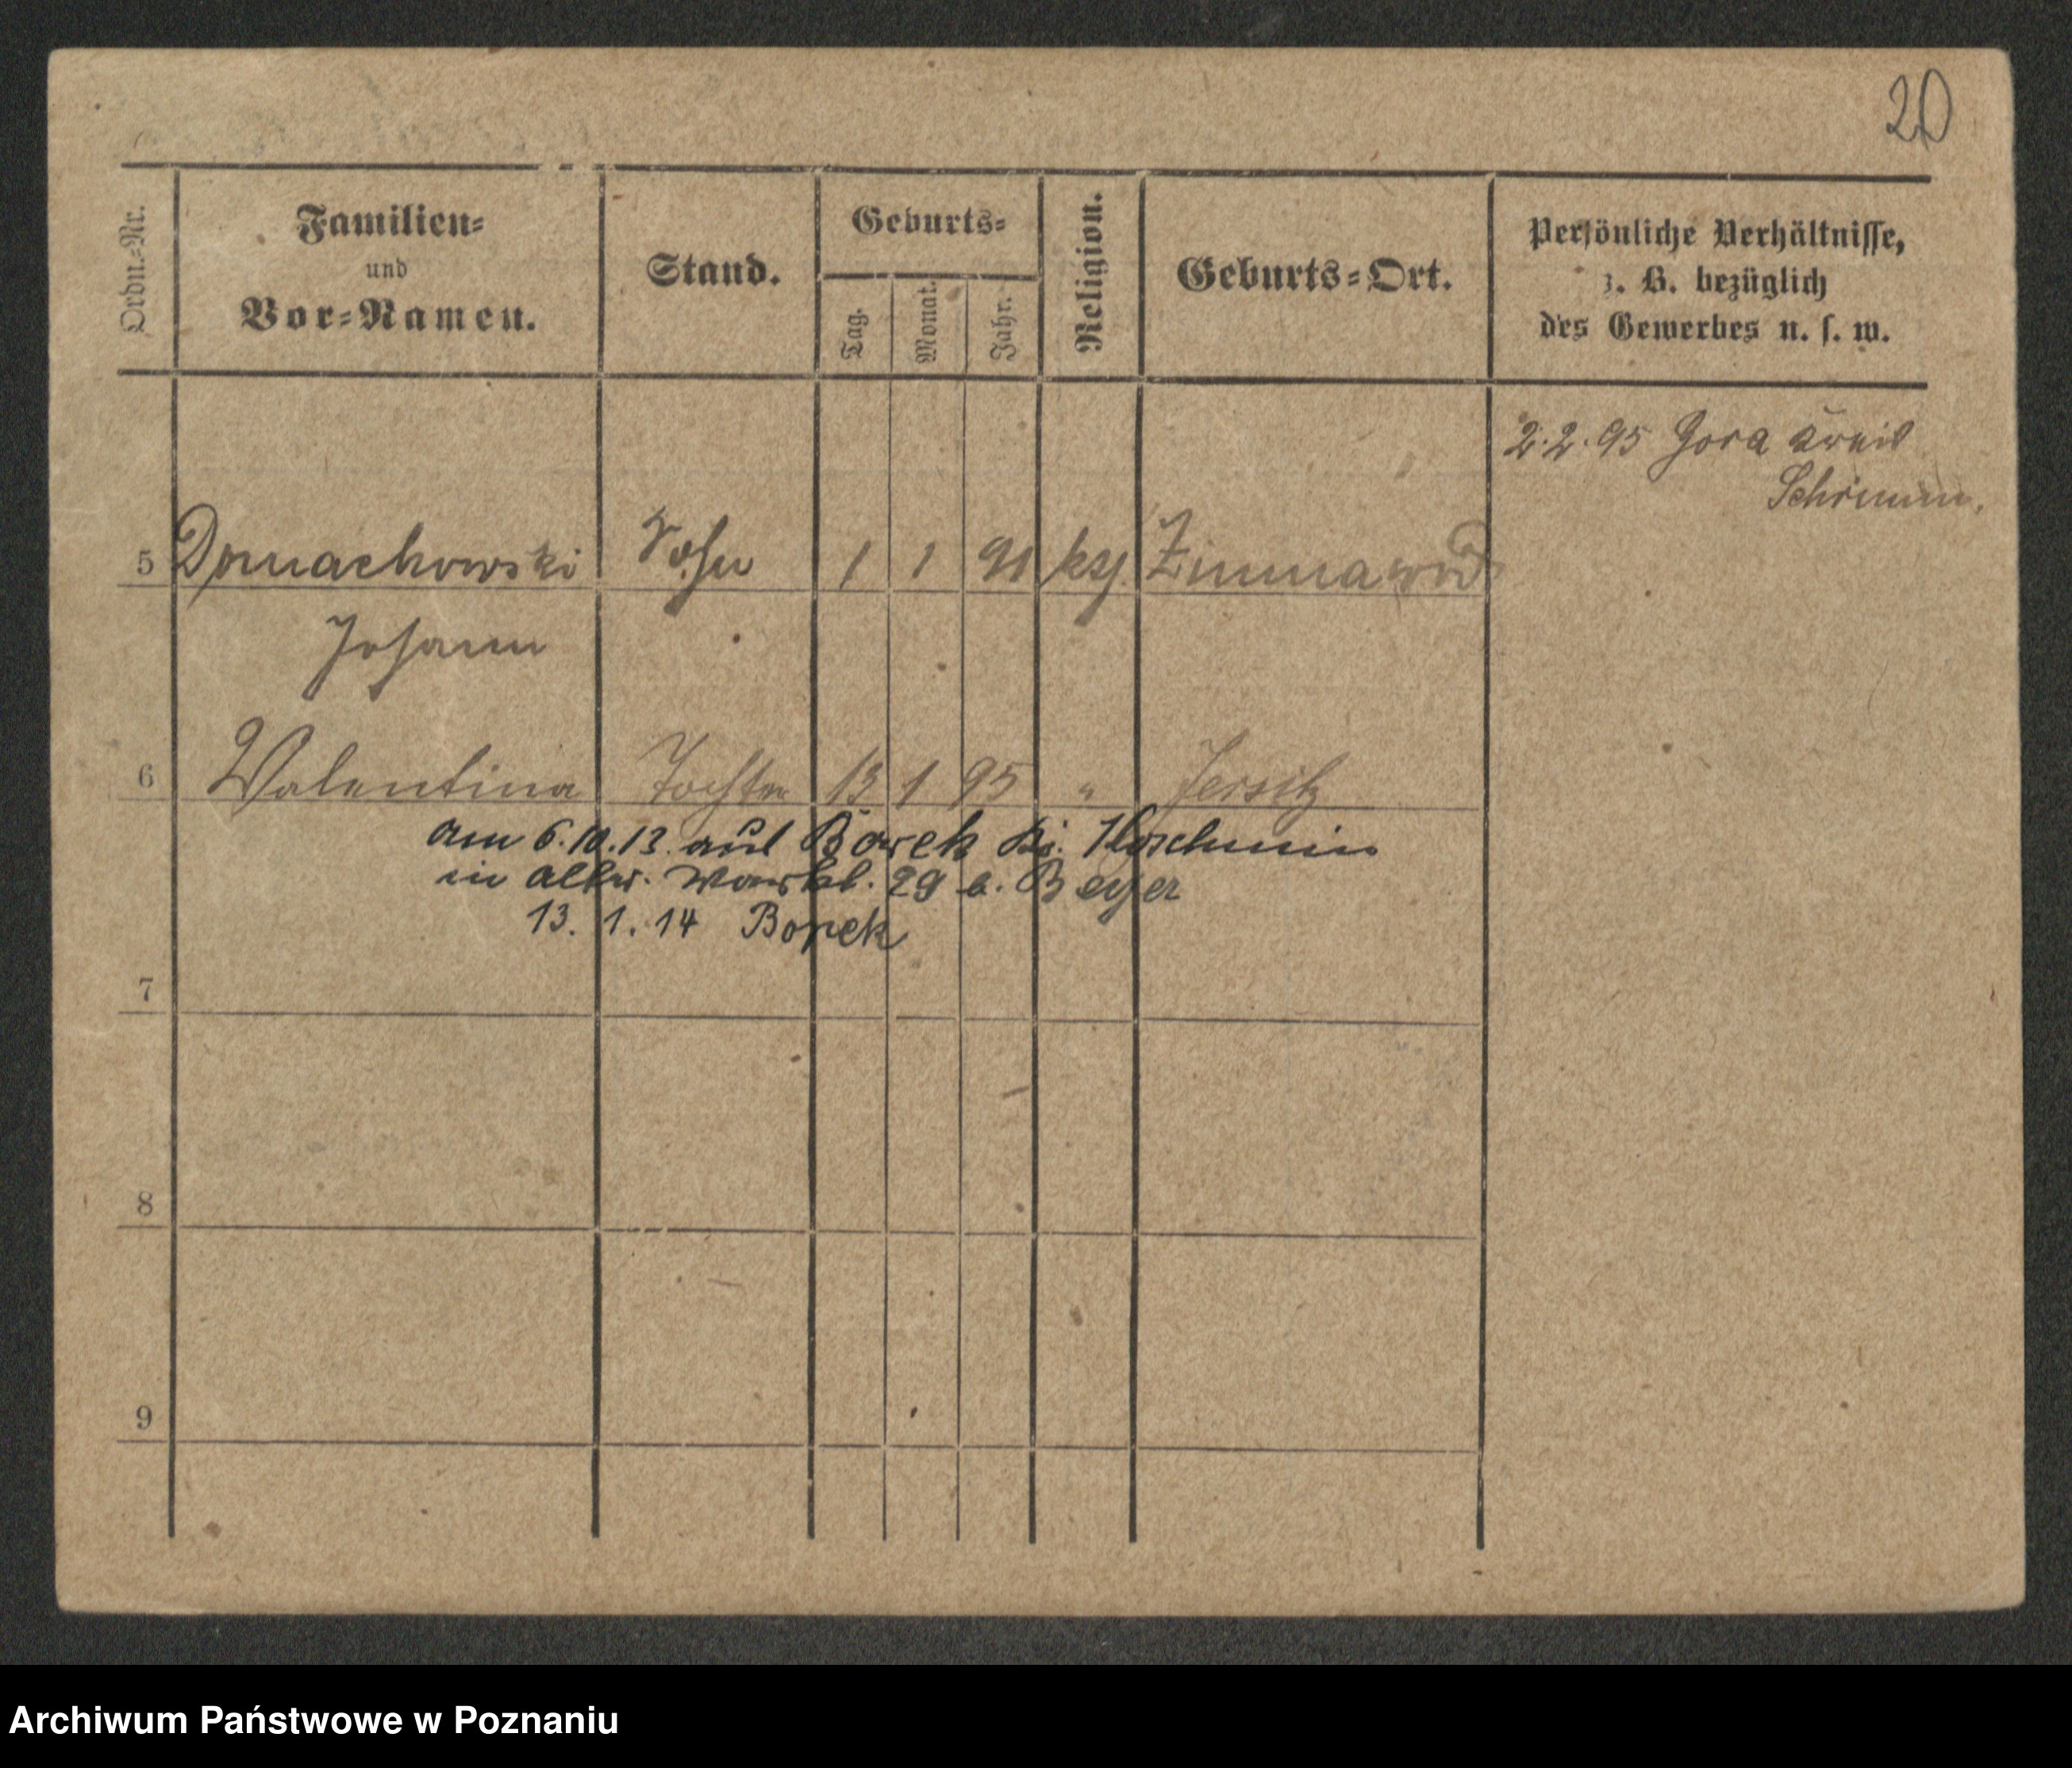 20
Ordn.-Nr.
Familien-
und
Vor-Namen.
Stand.
Geburts-
Tag.
Monat.
Jahr.
Religion.
Geburts-Ort.
Persönliche Verhältnisse,
z. B. bezüglich
des Gewerbes u. s. w.
2.2.95 Gora Kreis
Schrimm.
5 Domachowski Sohn 1 1 91 kath. Zimnawoda
Johann
6 Valentina Tochter 13 1 95 " Jersitz
am 6.10.13. aus Borek Kr. Koschmin
in Alter Markt. 29 b. Beyer
13.1.14 Borek
7
8
9
Archiwum Państwowe w Poznaniu